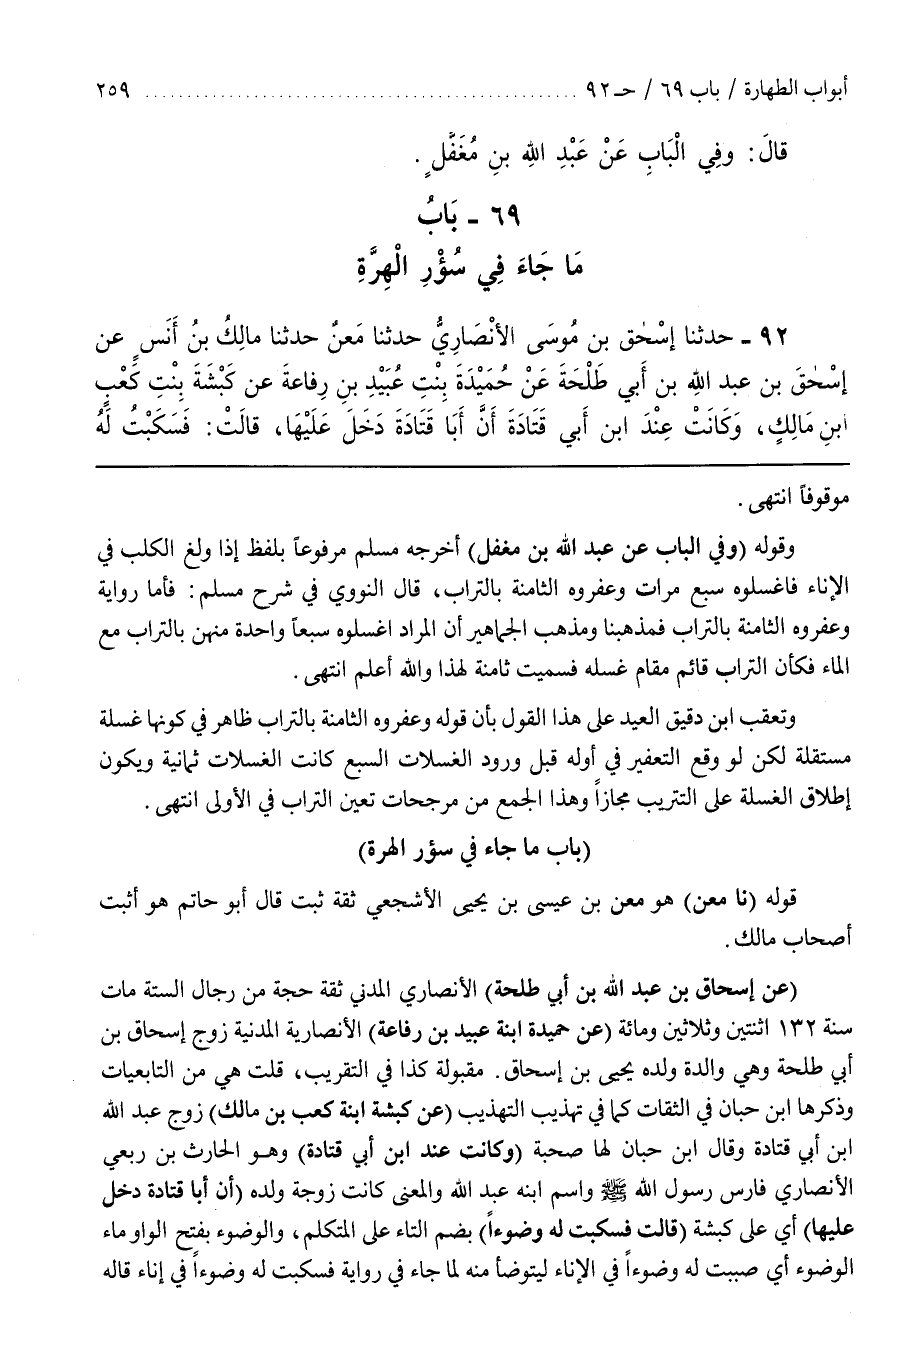 أبواب الطهارة / باب ٦٩ / حـ ٩٢ ................................................ ٢٥٩
قالَ: وفِي الْبَابِ عَنْ عَبْدِ اللهِ بنِ مُغَفَّلٍ.
٦٩ ـ بَابُ
مَا جَاءَ فِي سُؤْرِ الْهِرَّةِ
٩٢ ـ حدثنا إسْحٰق بن مُوسَى الأنْصَارِيُّ حدثنا مَعنٌ حدثنا مالِكُ بنُ أَنَسٍ عن
إسْحٰقَ بن عبد اللهِ بن أَبي طَلْحَةَ عَنْ حُمَيْدَةَ بِنْتِ عُبَيْدِ بنِ رِفاعةَ عن كَبْشَةَ بِنْتِ كَعْبِ
ابنِ مَالِكٍ، وَكَانَتْ عِنْدَ ابن أبي قَتَادَةَ أنَّ أبَا قَتَادَةَ دَخَلَ عَلَيْهَا، قالَتْ: فَسَكَبْتُ لَهُ
موقوفاً انتهى.
وقوله (وفي الباب عن عبد الله بن مغفل) أخرجه مسلم مرفوعاً بلفظ إذا ولغ الكلب في
الإناء فاغسلوه سبع مرات وعفروه الثامنة بالتراب، قال النووي في شرح مسلم: فأما رواية
وعفروه الثامنة بالتراب فمذهبنا ومذهب الجماهير أن المراد اغسلوه سبعاً واحدة منهن بالتراب مع
الماء فكأن التراب قائم مقام غسله فسميت ثامنة لهذا والله أعلم انتهى.
وتعقب ابن دقيق العيد على هذا القول بأن قوله وعفروه الثامنة بالتراب ظاهر في كونها غسلة
مستقلة لكن لو وقع التعفير في أوله قبل ورود الغسلات السبع كانت الغسلات ثمانية ويكون
إطلاق الغسلة على التتريب مجازاً وهذا الجمع من مرجحات تعين التراب في الأولى انتهى.
(باب ما جاء في سؤر الهرة)
قوله (نا معن) هو معن بن عيسى بن يحيى الأشجعي ثقة ثبت قال أبو حاتم هو أثبت
أصحاب مالك.
(عن إسحاق بن عبد الله بن أبي طلحة) الأنصاري المدني ثقة حجة من رجال الستة مات
سنة ١٣٢ اثنتين وثلاثين ومائة (عن حميدة ابنة عبيد بن رفاعة) الأنصارية المدنية زوج إسحاق بن
أبي طلحة وهي والدة ولده يحيى بن إسحاق. مقبولة كذا في التقريب، قلت هي من التابعيات
وذكرها ابن حبان في الثقات كما في تهذيب التهذيب (عن كبشة ابنة كعب بن مالك) زوج عبد الله
ابن أبي قتادة وقال ابن حبان لها صحبة (وكانت عند ابن أبي قتادة) وهـو الحارث بن ربعي
الأنصاري فارس رسول الله ﷺ واسم ابنه عبد الله والمعنى كانت زوجة ولده (أن أبا قتادة دخل
عليها) أي على كبشة (قالت فسكبت له وضوءاً) بضم التاء على المتكلم، والوضوء بفتح الواو ماء
الوضوء أي صببت له وضوءاً في الإناء ليتوضأ منه لما جاء في رواية فسكبت له وضوءاً في إناء قاله